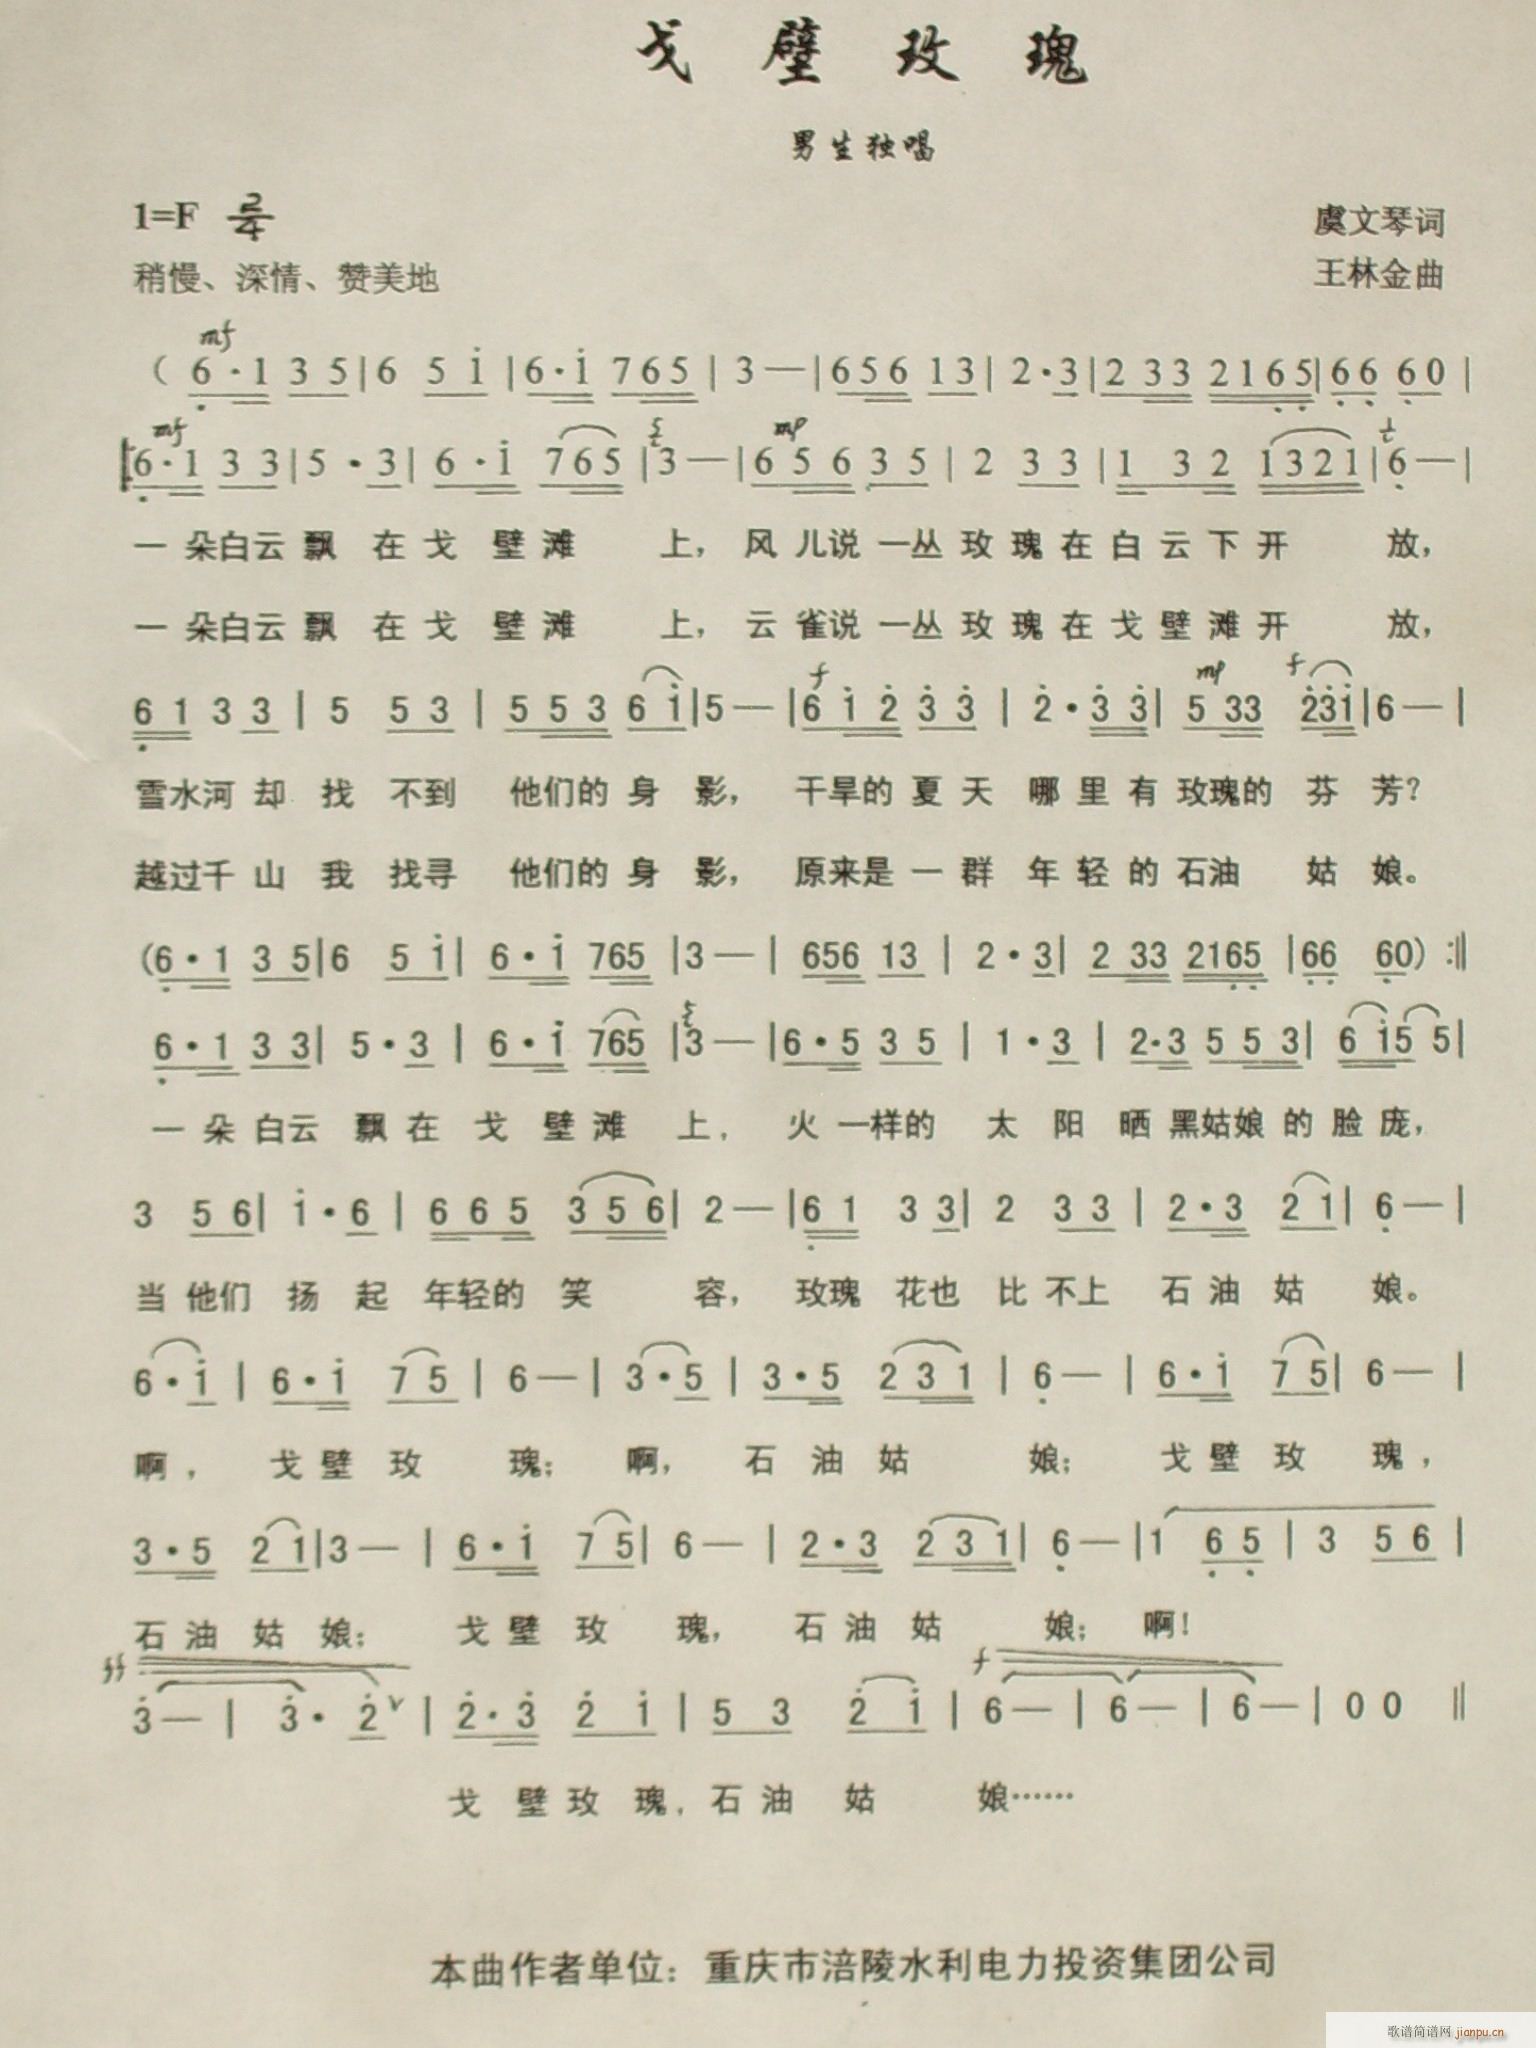 戈壁玫瑰
男生独唱
1=F 2/4 虞文琴词
稍慢、深情、赞美地 王林金曲
mf
( 6·1 3 5 | 6 5 i | 6·i 765 | 3 — | 656 13 | 2·3 | 2 33 2165 | 66 60 |
mf mp
6·1 3 3 | 5·3 | 6·i 765 | 3 — | 6 5 6 3 5 | 2 3 3 | 1 3 2 1321 | 6 — |
一朵白云飘在戈壁滩上，风儿说一丛玫瑰在白云下开放，
一朵白云飘在戈壁滩上，云雀说一丛玫瑰在戈壁滩开放，
f mp f
6 1 3 3 | 5 5 3 | 5 5 3 6 i | 5 — | 6 i 2 3 3 | 2·3 3 | 5 33 23i | 6 — |
雪水河却找不到他们的身影，干旱的夏天哪里有玫瑰的芬芳？
越过千山我找寻他们的身影，原来是一群年轻的石油姑娘。
(6·1 3 5 | 6 5 i | 6·i 765 | 3 — | 656 13 | 2·3 | 2 33 2165 | 66 60) :‖
6·1 3 3 | 5·3 | 6·i 765 | 3 — | 6·5 3 5 | 1·3 | 2·3 5 5 3 | 6 i5 5 |
一朵白云飘在戈壁滩上，火一样的太阳晒黑姑娘的脸庞，
3 5 6 | i·6 | 6 6 5 3 5 6 | 2 — | 6 1 3 3 | 2 3 3 | 2·3 2 1 | 6 — |
当他们扬起年轻的笑容，玫瑰花也比不上石油姑娘。
6·i | 6·i 7 5 | 6 — | 3·5 | 3·5 2 3 1 | 6 — | 6·i 7 5 | 6 — |
啊，戈壁玫瑰；啊，石油姑娘；戈壁玫瑰，
3·5 2 1 | 3 — | 6·i 7 5 | 6 — | 2·3 2 3 1 | 6 — | 1 6 5 | 3 5 6 |
石油姑娘；戈壁玫瑰，石油姑娘；啊！
ff f
3 — | 3·2 v | 2·3 2 i | 5 3 2 i | 6 — | 6 — | 6 — | 0 0 ‖
戈壁玫瑰，石油姑娘……
本曲作者单位：重庆市涪陵水利电力投资集团公司
歌谱简谱网 jianpu.cn